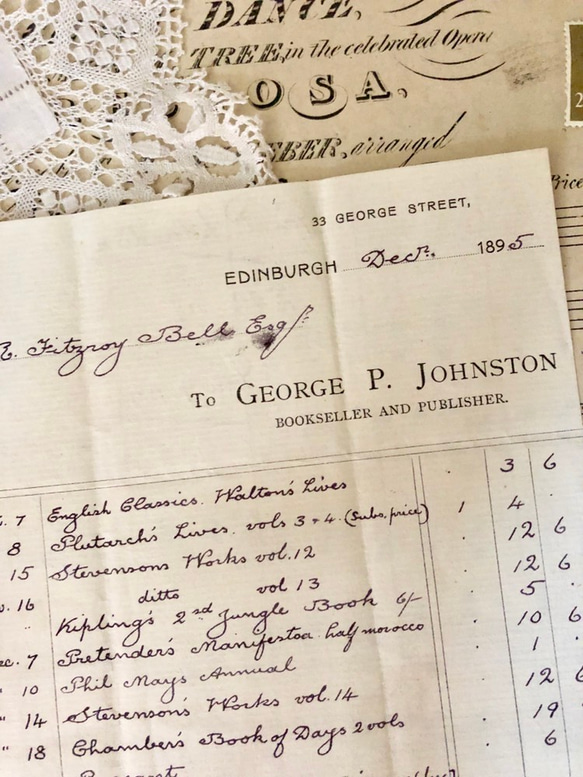 DANCE,
TREE, in the celebrated Opera
OSA,
EBER, arranged
2
Price
33 GEORGE STREET,
EDINBURGH Decr. 1895
R. Fitzroy Bell Esqr
To GEORGE P. JOHNSTON
BOOKSELLER AND PUBLISHER.
7 English Classics. Walton's Lives . 3 6
8 Plutarch's Lives. vols 3 & 4. (Subs. price) 1 4 .
15 Stevensons Works vol. 12 . 12 6
16 ditto vol 13 . 12 6
" Kipling's 2nd Jungle Book 6/- . 5
ec. 7 Pretender's Manifestoa half morocco . 10 6
" 10 Phil Mays Annual . 1
" 14 Stevenson's Works vol. 14 . 12 6
" 18 Chamber's Book of Days 2 vols . 19
. 6